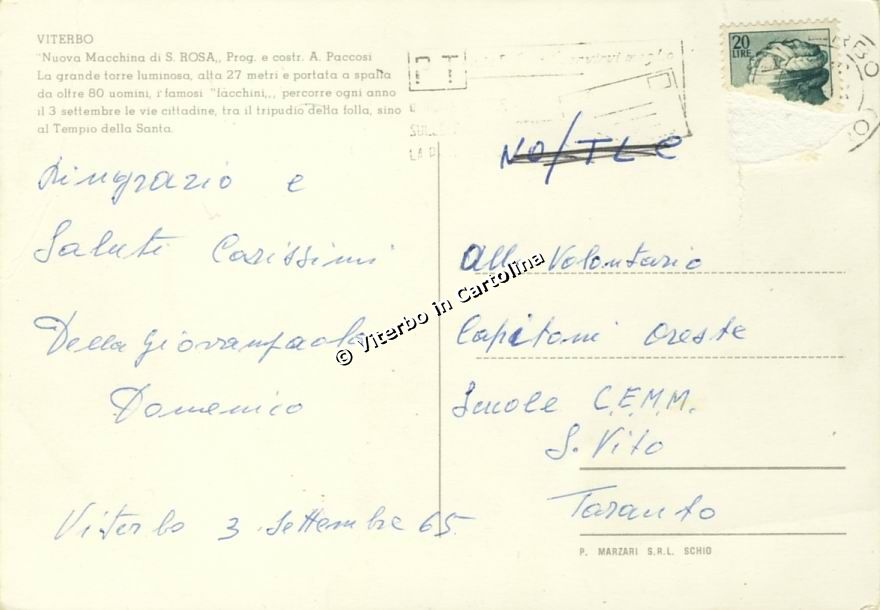 VITERBO
"Nuova Macchina di S. ROSA,, Prog. e costr. A. Paccosi
La grande torre luminosa, alta 27 metri e portata a spalla
da oltre 80 uomini, i famosi "facchini,,, percorre ogni anno
il 3 settembre le vie cittadine, tra il tripudio della folla, sino
al Tempio della Santa.
Ringrazio e
Saluti Carissimi
Della Giovampaola
Domenico
Viterbo 3 Settembre 65
PT
20
LIRE
NO/TLC
Alla Volontario
Capitoni Oreste
Scuole C.E.M.M.
S. Vito
Taranto
P. MARZARI S.R.L. SCHIO
© Viterbo in Cartolina